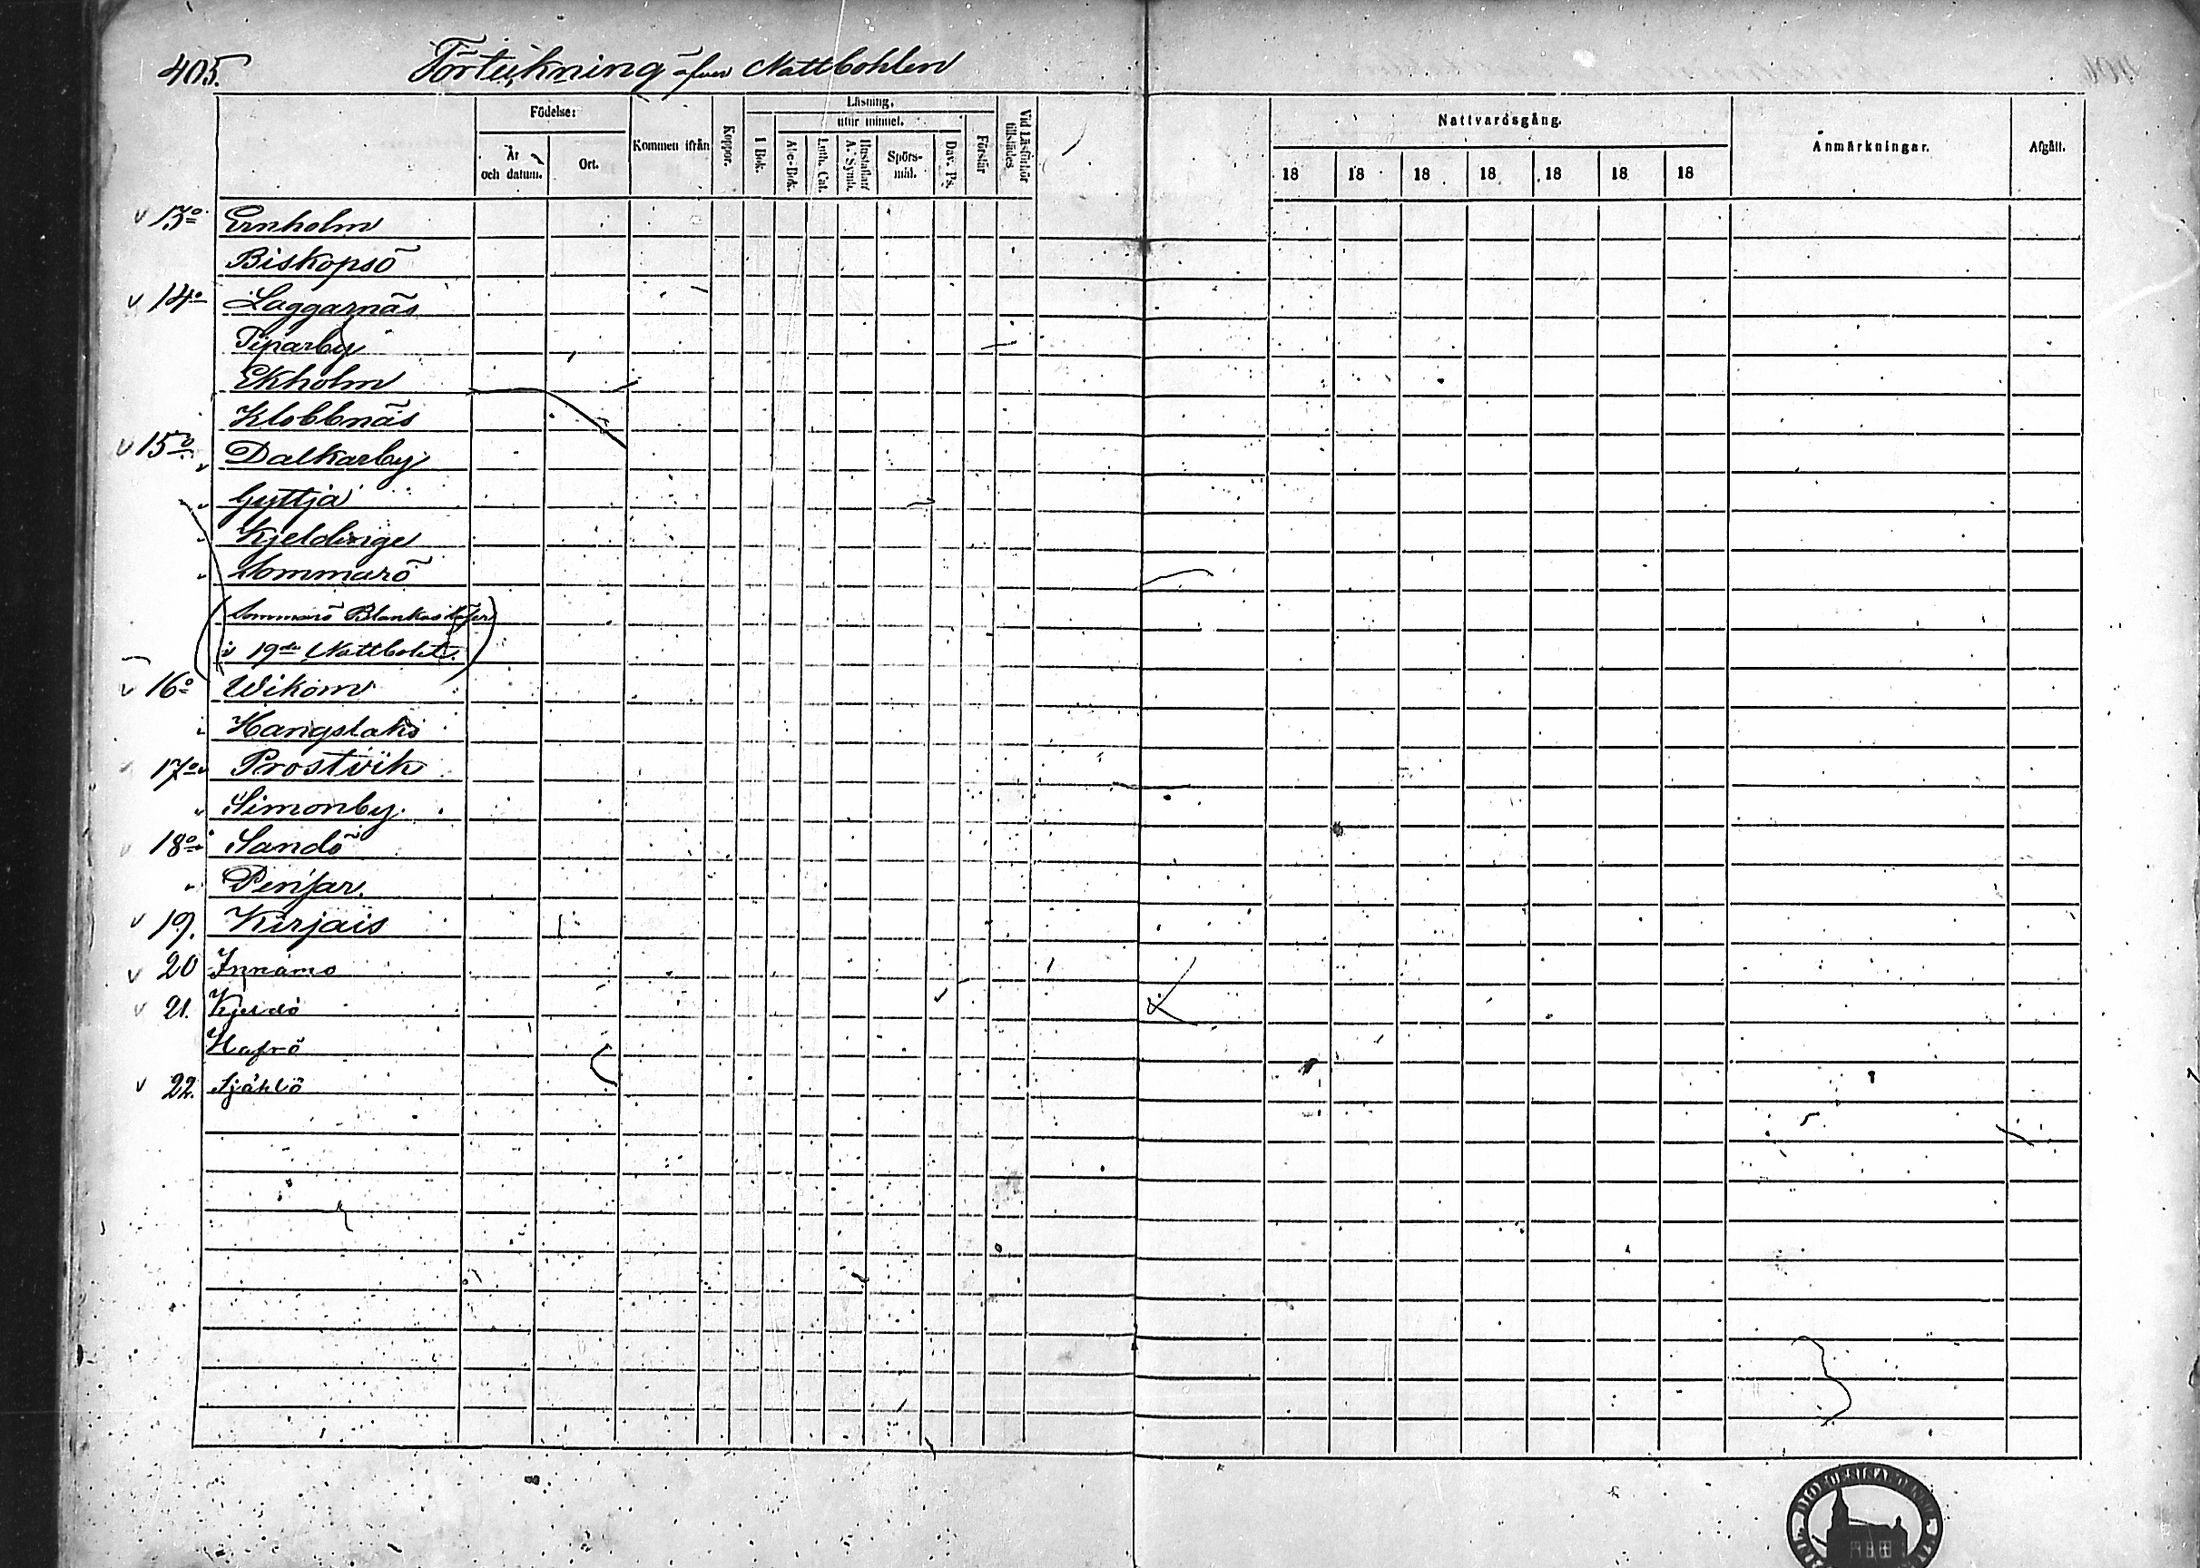 405.
Förteckning öfver Nattbohlen
Födelse:
År och datum.
Ort.
Kommen ifrån
Koppor.
Läsning,
I Bok.
utur minnet.
Abc-Bok.
Luth. Cat.
Hustaflan/ A. Symb.
Spörs-mål.
Dav. Ps.
Förstår
Vid Läsförhör tillstädes
Nattvardsgång.
18 18 18 18 18 18 18
Anmärkningar.
Afgått.
13o Ernholm
Biskopsö
14o Laggarnäs
Piparby
Ekholm
Klobbnäs
15o Dalkarby
Gyttja
Kjeldinge
Sommarö
(Sommarö Blankas
i 19de Nattbohlet.)
16o Wikom
Hangslaks
17o Prostvik
Simonby
18o Sandö
Pensar
19. Kirjais
20 Innämo
21. Kjeldö
Hafrö
22. Själilö